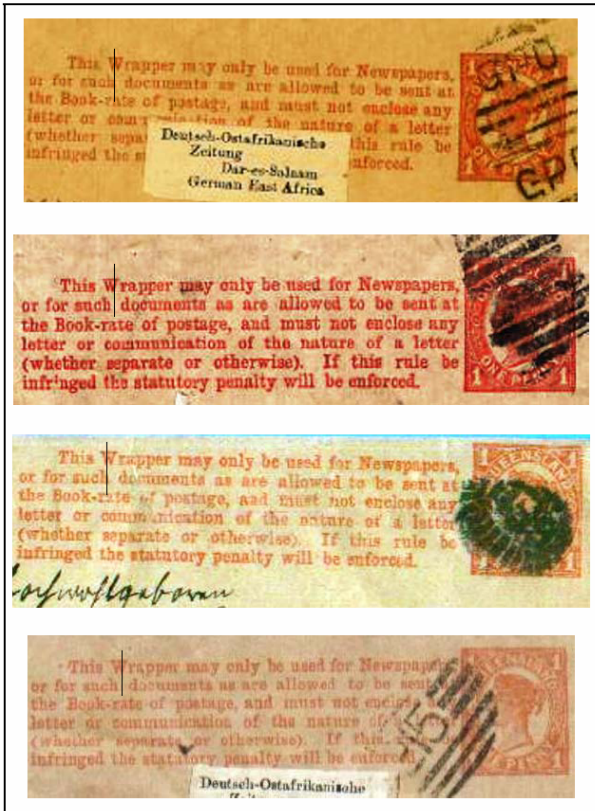 This Wrapper may only be used for Newspapers,
or for such documents as are allowed to be sent at
the Book-rate of postage, and must not enclose any
letter or communication of the nature of a letter
(whether separa this rule be
infringed the s enforced.
Deutsch-Ostafrikanische
Zeitung
Dar-es-Salaam
German East Africa
1 1
ONE PENNY
GPO
This Wrapper may only be used for Newspapers,
or for such documents as are allowed to be sent at
the Book-rate of postage, and must not enclose any
letter or communication of the nature of a letter
(whether separate or otherwise). If this rule be
infringed the statutory penalty will be enforced.
1
1 1
This Wrapper may only be used for Newspapers,
or for such documents as are allowed to be sent at
the Book-rate of postage, and must not enclose any
letter or communication of the nature of a letter
(whether separate or otherwise). If this rule be
infringed the statutory penalty will be enforced.
QUEENSLAND
1 1
1 1
Hochwohlgeboren
This Wrapper may only be used for Newspapers
or for such documents as are allowed to be sent
the Book-rate of postage, and must not enclose
letter or communication of the nature of
(whether separate or otherwise). If this
infringed the statutory penalty will be enforced
QUEENSLAND
1 1
PENNY 1
15
Deutsch-Ostafrikanische